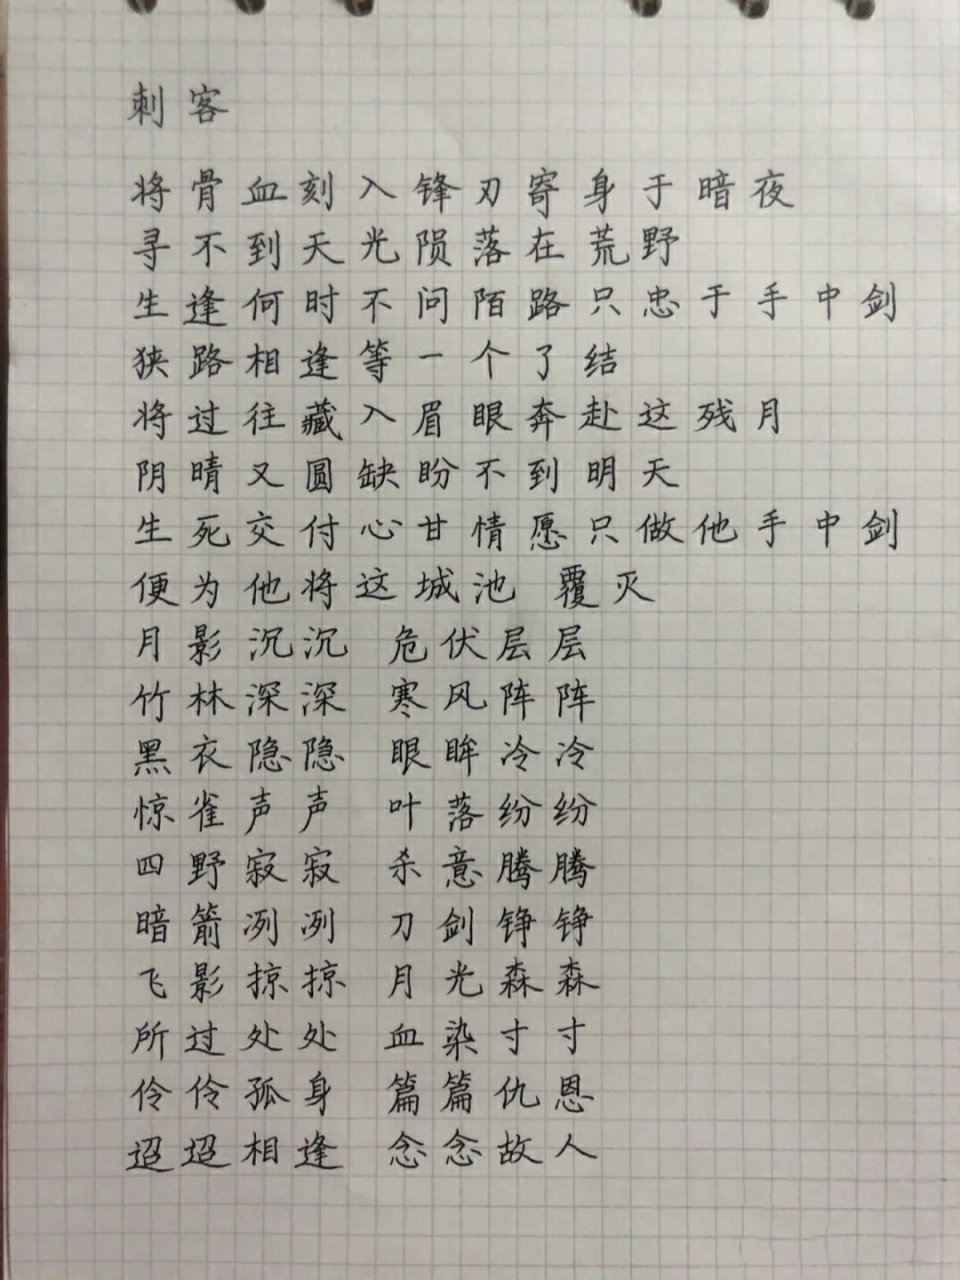 刺客
将骨血刻入锋刃寄身于暗夜
寻不到天光陨落在荒野
生逢何时不问陌路只忠于手中剑
狭路相逢等一个了结
将过往藏入眉眼奔赴这残月
阴晴又圆缺盼不到明天
生死交付心甘情愿只做他手中剑
便为他将这城池 覆灭
月影沉沉 危伏层层
竹林深深 寒风阵阵
黑衣隐隐 眼眸冷冷
惊雀声声 叶落纷纷
四野寂寂 杀意腾腾
暗箭冽冽 刀剑铮铮
飞影掠掠 月光森森
所过处处 血染寸寸
伶伶孤身 篇篇仇恩
迢迢相逢 念念故人